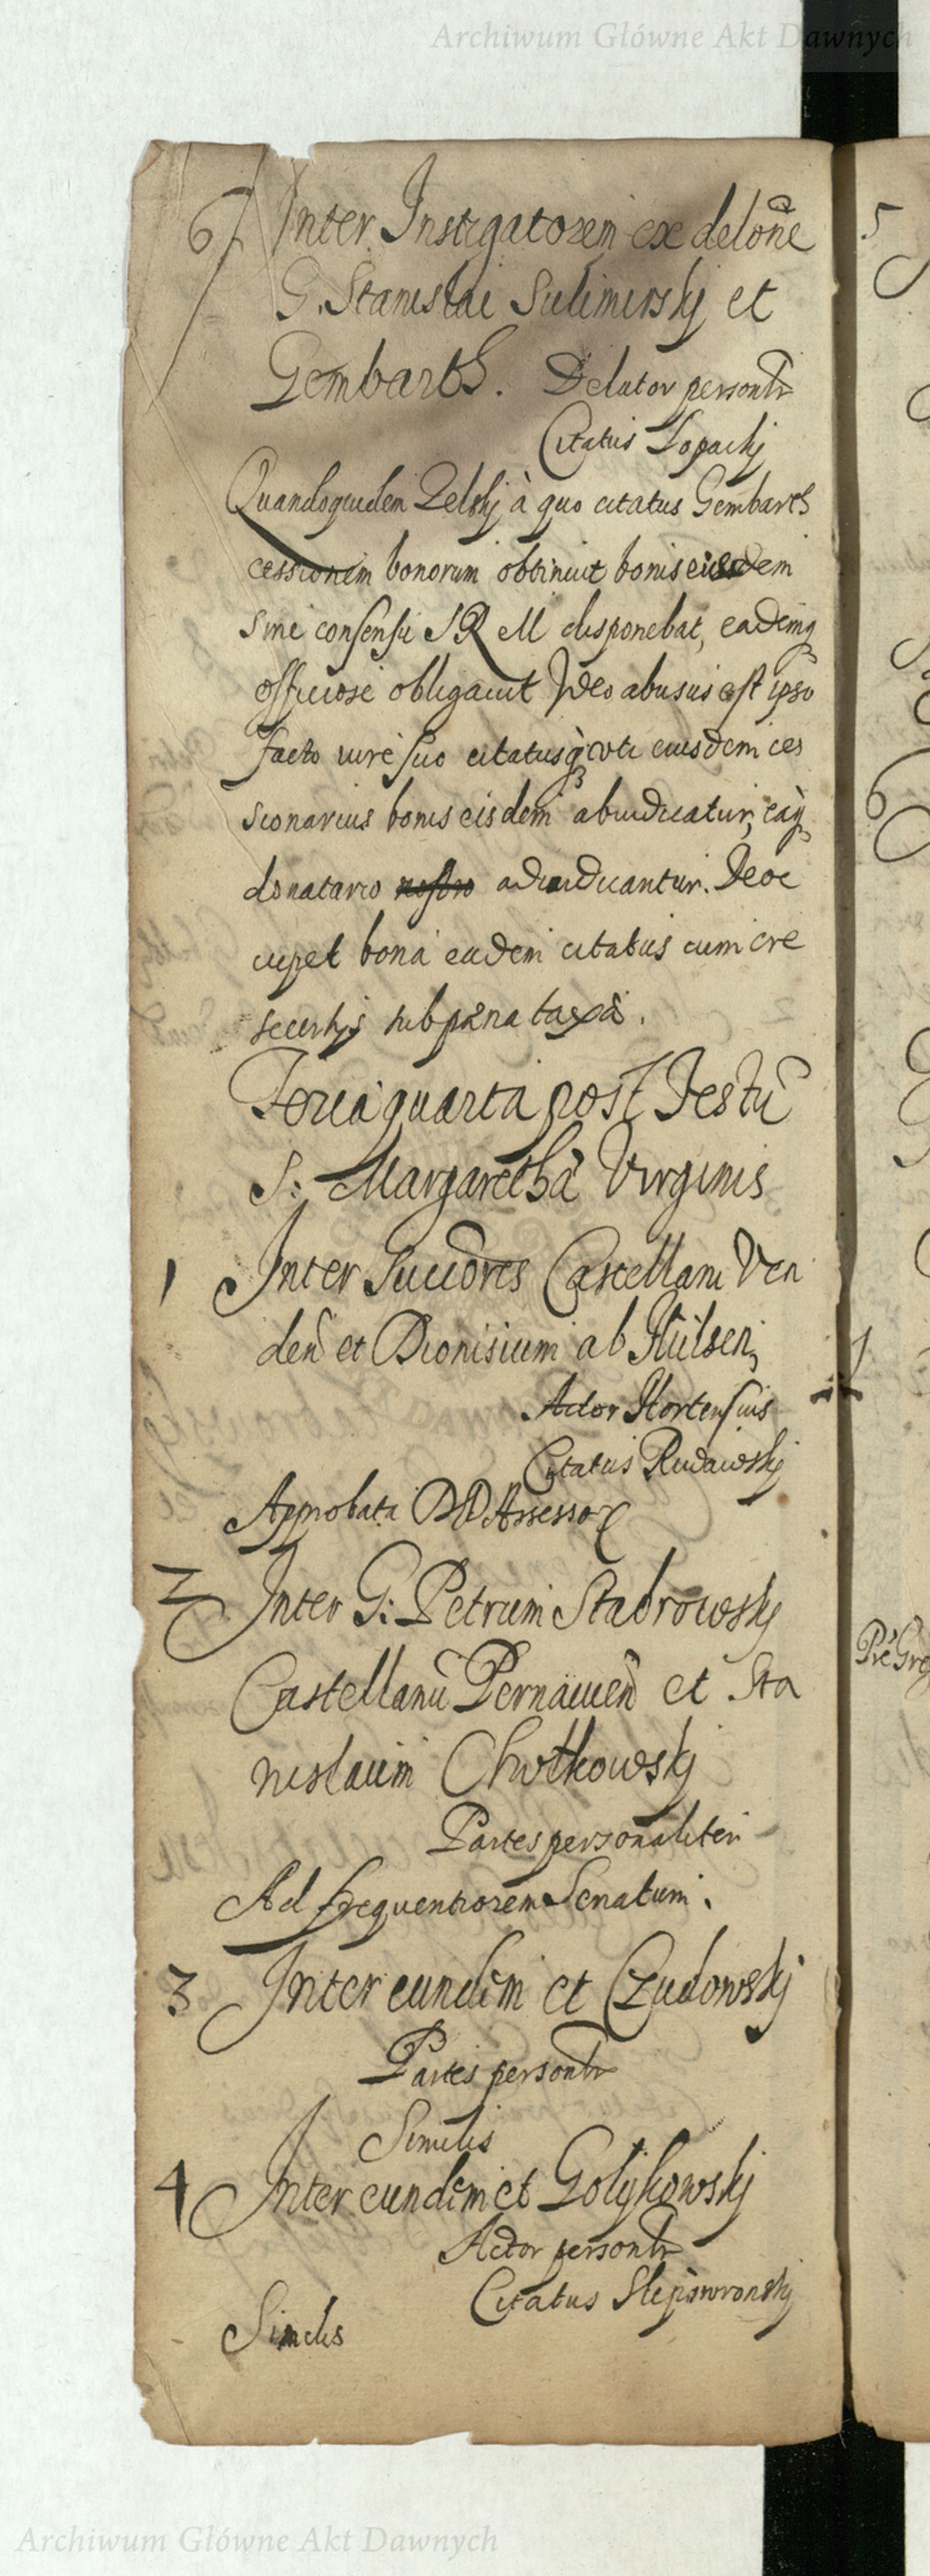 Archiwum Główne Akt Dawnych
6 Inter Instigatorem ex delone
G. Stanislai Sulimirskj et
Gembarth. Delator personlr
Citatus Lopackj
Quandoquidem Zelskj à quo citatus Gembarth
cessionem bonorum obtinuit bonis eisdem
sine consensu S R M disponebat, eademq
officiose obligavit Ideo abusus est ipso
facto iure suo citatusq uti eiusdem ces
sionarius bonis eisdem abiudicatur, eaq
donatario nostro adiudicantur.
cupet bona eadem citatus cum cre
secentijs sub pæna taxa.
Feria quarta post Festu
S: Margarethæ Virginis
1 Inter Succores Castellani Ven
den et Dionisium ab Hülsen,
Actor Hortensius
Citatus Rudawskj
Approbata DD Assessor
2 Inter G: Petrum Stabrowskj
Castellanu Pernawen et Sta
nislaum Chotkowskj
Partes personaliter
Ad frequentiorem Senatum.
3 Inter eundem et Czudowskj
Partes personlr
Similis
4 Inter eundem et Golijkowskj
Actor personlr
Citatus Slepowronskj
Similis
5
6
1
Archiwum Główne Akt Dawnych